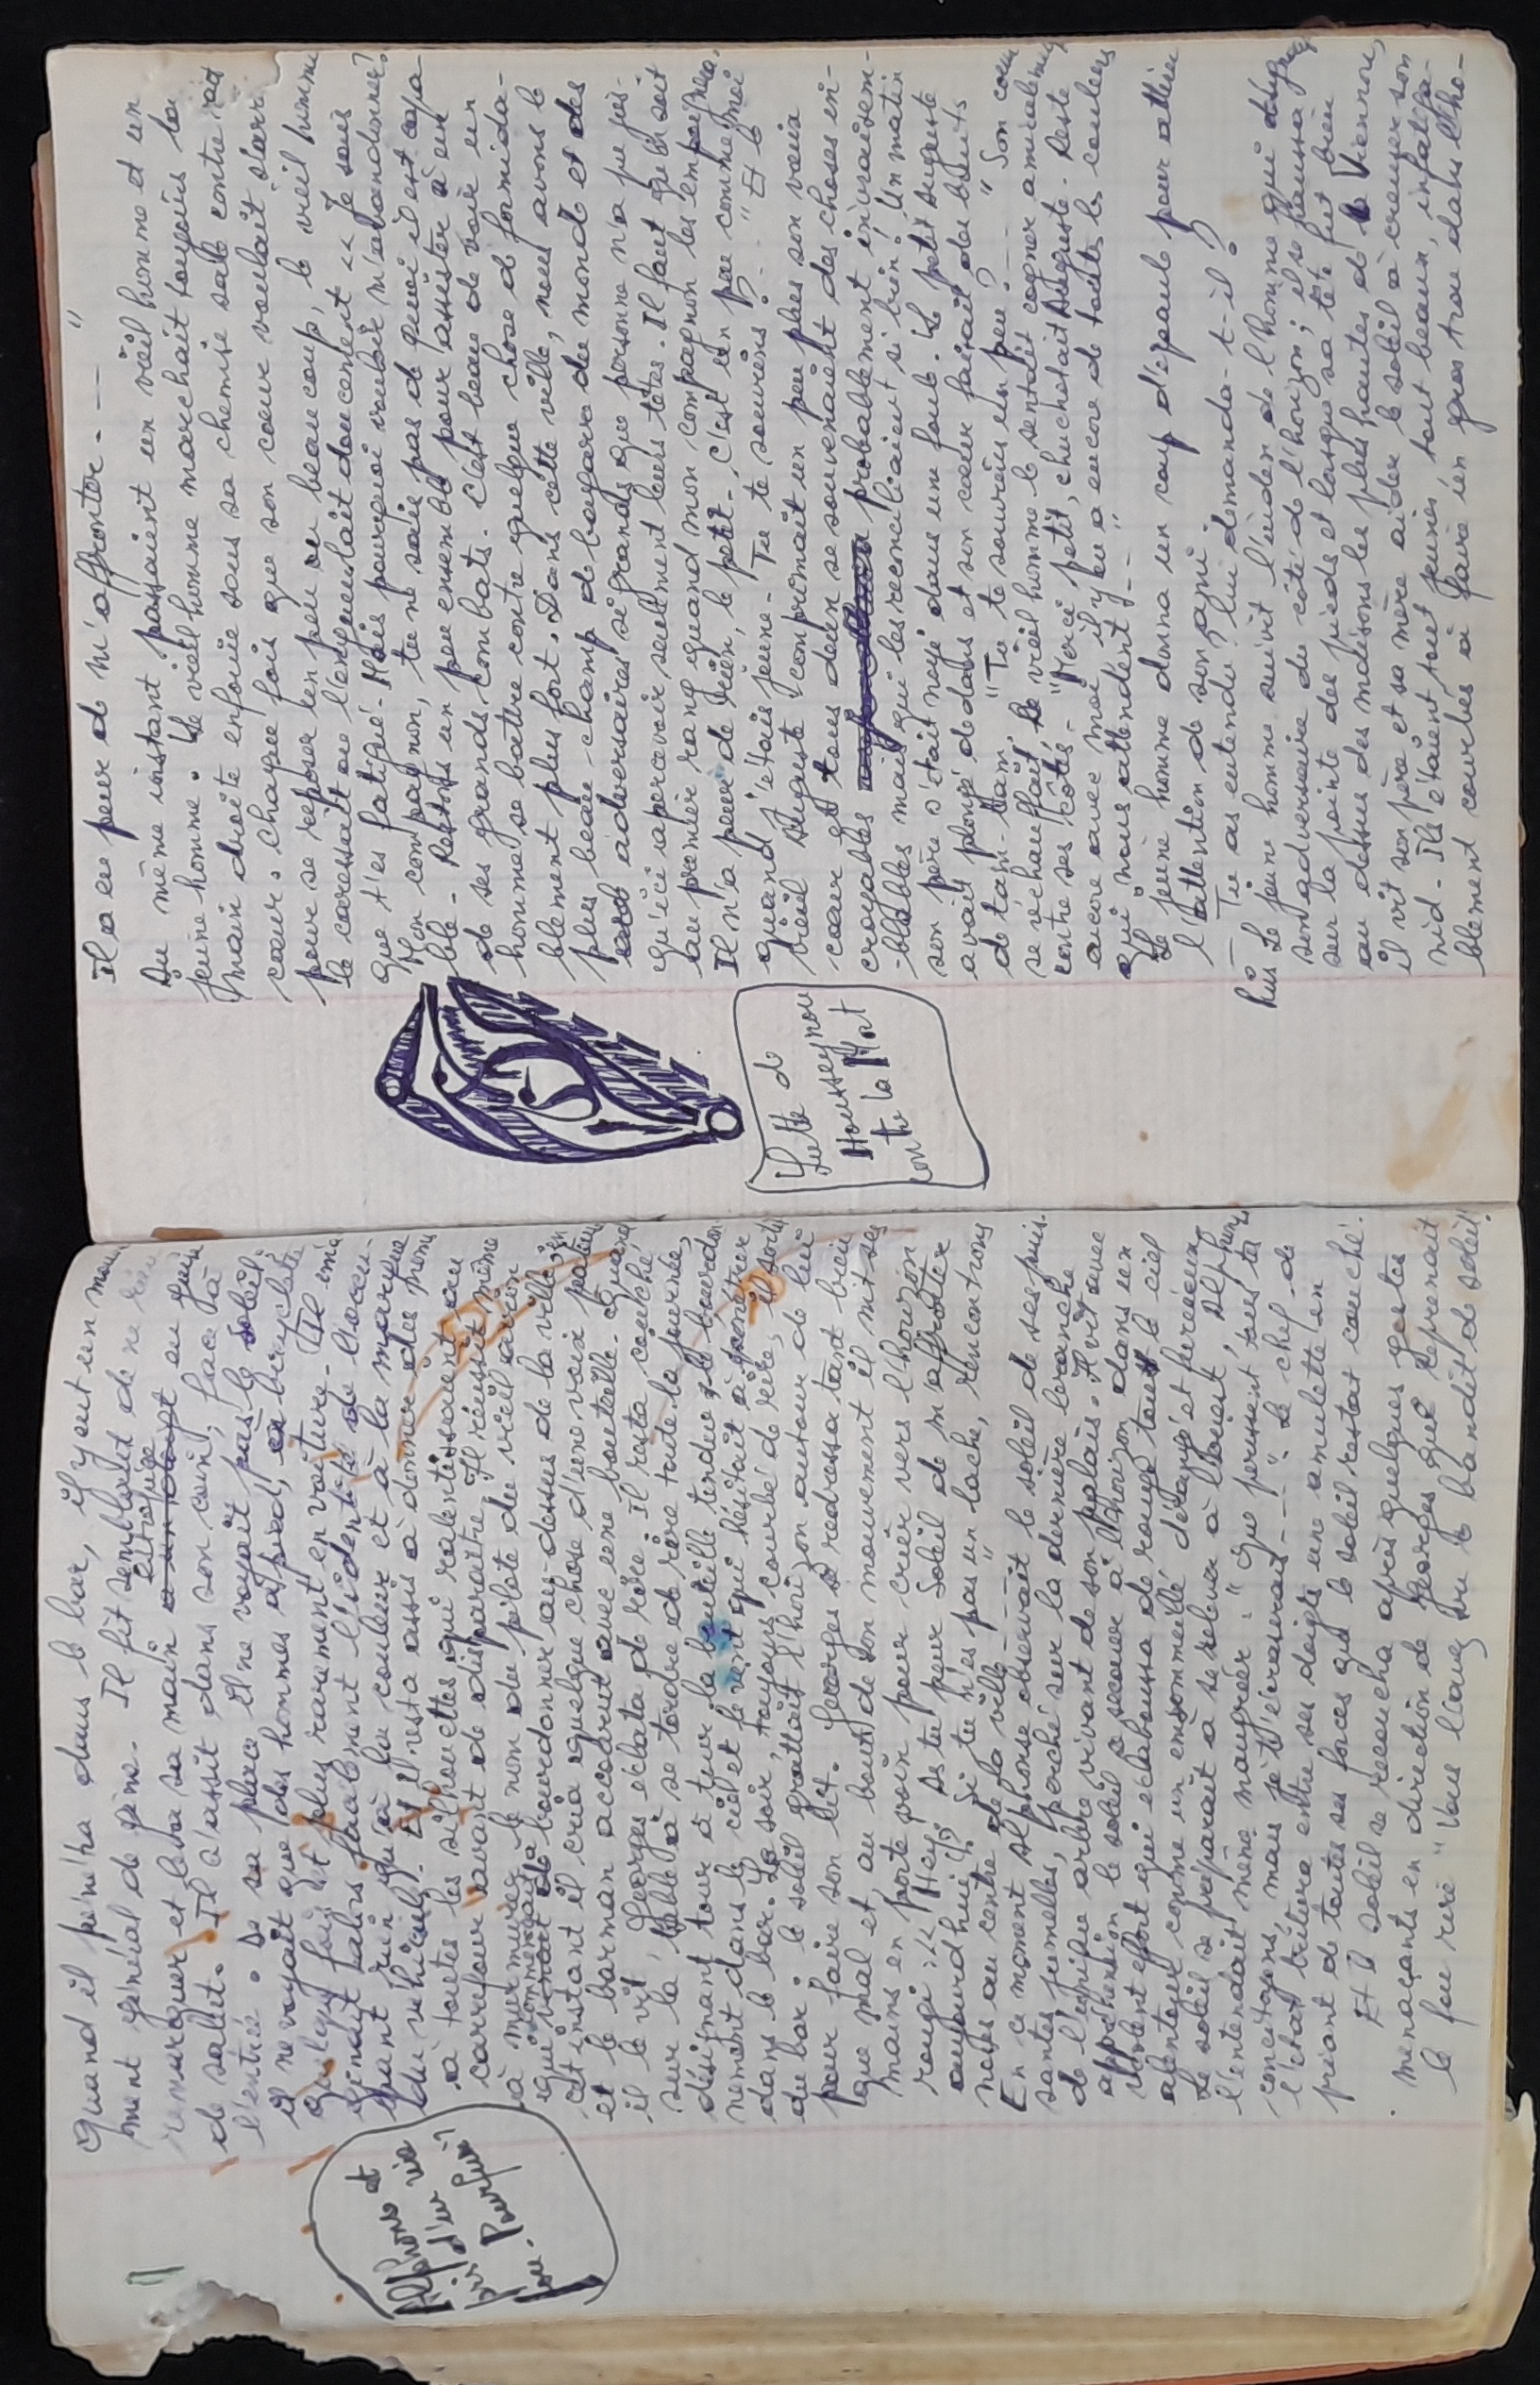 Quand il pénétra dans le bar, il y eut un mou
ment général de gêne. Il fit semblant de ne rien
remarquer et leva sa main en guise
de salut. Il s'assit dans son coin, face à
l'entrée. De sa place il ne voyait pas le soleil.
Il ne voyait que des hommes à pied, en bicyclette
Quelques fois et plus rarement en voiture.
également l'identité de l'occu-
quant rien qu'à la couleur et à la marque
du véhicule. Et il resta assis à donner des noms
à toutes les silhouettes qui ralentissaient au
carrefour avant de disparaître. Il réussit même
à murmurer le nom du pilote du vieil avion
qui commençait à bourdonner au-dessus de la ville. En
cet instant il cria quelque chose d'une voix pâteu
et le barman accourut avec une bouteille. Quand
il le vit, Georges éclata de rire. Il resta couché
sur la table à se tordre de rire toute la journée,
désignant tour à tour la bouteille tendue, le bourdon
nement dans le ciel et le vent qui hésitait à pénétrer
dans le bar. Le soir, toujours courbé de rire, il sortit
du bar. Le soleil grattait l'horizon autour de lui
pour faire son lit. Georges se redressa tant bien
que mal et au bout de son mouvement il mit ses
mains en porte voix pour crier vers l'horizon
rougi : << Hey! As-tu peur Soleil de m'affronter
aujourd'hui ? Si tu n'es pas un lâche, rencontrons
nous au centre de la ville ---"
En ce moment Alphonse observait le soleil de ses puis-
santes jumelles, perché sur la dernière branche
de l'unique arbre vivant de son palais. Il vit avec
appréhension le soleil se secouer à l'horizon dans un
violent effort qui éclaboussa de rouge tout le ciel
alentour comme un ensommeillé dérangé et furieux.
Le soleil se préparait à se relever à l'Ouest, Alphonse
l'entendait même maugréer : "Que périssent tous tes
concitoyens, mais je t'écraserai --- " Le chef de
l'état tritura entre ses doigts une amulette en
priant de toutes ses forces que le soleil restât couché.
Et le soleil se recoucha après quelques gestes
menaçants en direction de Georges que reprenait
le fou rire "Vous l'avez vu le bandit de soleil!
Alphonse et
Il a eu peur de m'affronter ---"
Au même instant passaient un vieil homme et un
jeune homme. Le vieil homme marchait toujours la
main droite enfouie sous sa chemise sale contre son
coeur. Chaque fois que son coeur voulait s'arr
pour se reposer un peu ou beaucoup, le vieil homme
le caressait ou l'engueulait doucement << Je sais
que t'es fatigué. Mais pourquoi vouloir m'abandonner?
Mon compagnon, tu ne sais pas de quoi il est capa-
ble. Restons un peu ensemble pour assister à un
de ses grands combats. C'est beau de voir un
homme se battre contre quelque chose de formida-
blement plus fort. Dans cette ville, nous avons le
plus beau champ de bagarre du monde et des
adversaires si grands que personne n'a pu jus-
qu'ici apercevoir seulement leurs têtes. Il faut qu'on soit
au premier rang quand mon compagnon les empoignera.
Il n'a peur de rien, le petit. C'est un peu comme moi
quand j'étais jeune. Tu te souviens ? --- " Et le
vieil Auguste comprimait un peu plus son vieux
coeur et tous deux se souvenaient des choses in-
croyables probablement invraisem-
-blables mais qui les réconciliaient si bien! Un matin
son père s'était noyé dans un foule. Le petit Auguste
avait plongé dedans et son coeur faisait des bruits
de tam-tam. "Tu te souviens un peu ? --- " Son coeur
se réchauffait. Le vieil homme le sentait cogner amicalement
contre ses côtes. "Merci petit, chuchotait Auguste. Reste
encore avec moi il y en a encore de toutes les couleurs
qui nous attendent ---"
Le jeune homme donna un coup d'épaule pour attirer
l'attention de son ami.
— Tu as entendu? lui demanda-t-il ?
Puis Le jeune homme suivit l'index de l'homme qui
son adversaire du côté de l'horizon; il se haussa
sur la pointe des pieds et lorsque sa tête fut bien
au dessus des maisons les plus hautes de
il vit son père et sa mère aider le soleil à creuser son
nid. Ils étaient tout jeunes, tout beaux, infatiga-
blement courbés à faire un gros trou dans l'ho-
Lutte de
Housseynou
contre la Mort